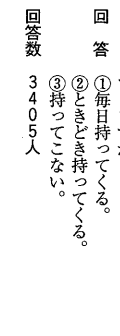 回答 ①毎日持ってくる。
②ときどき持ってくる。
③持ってこない。
回答数 3405人